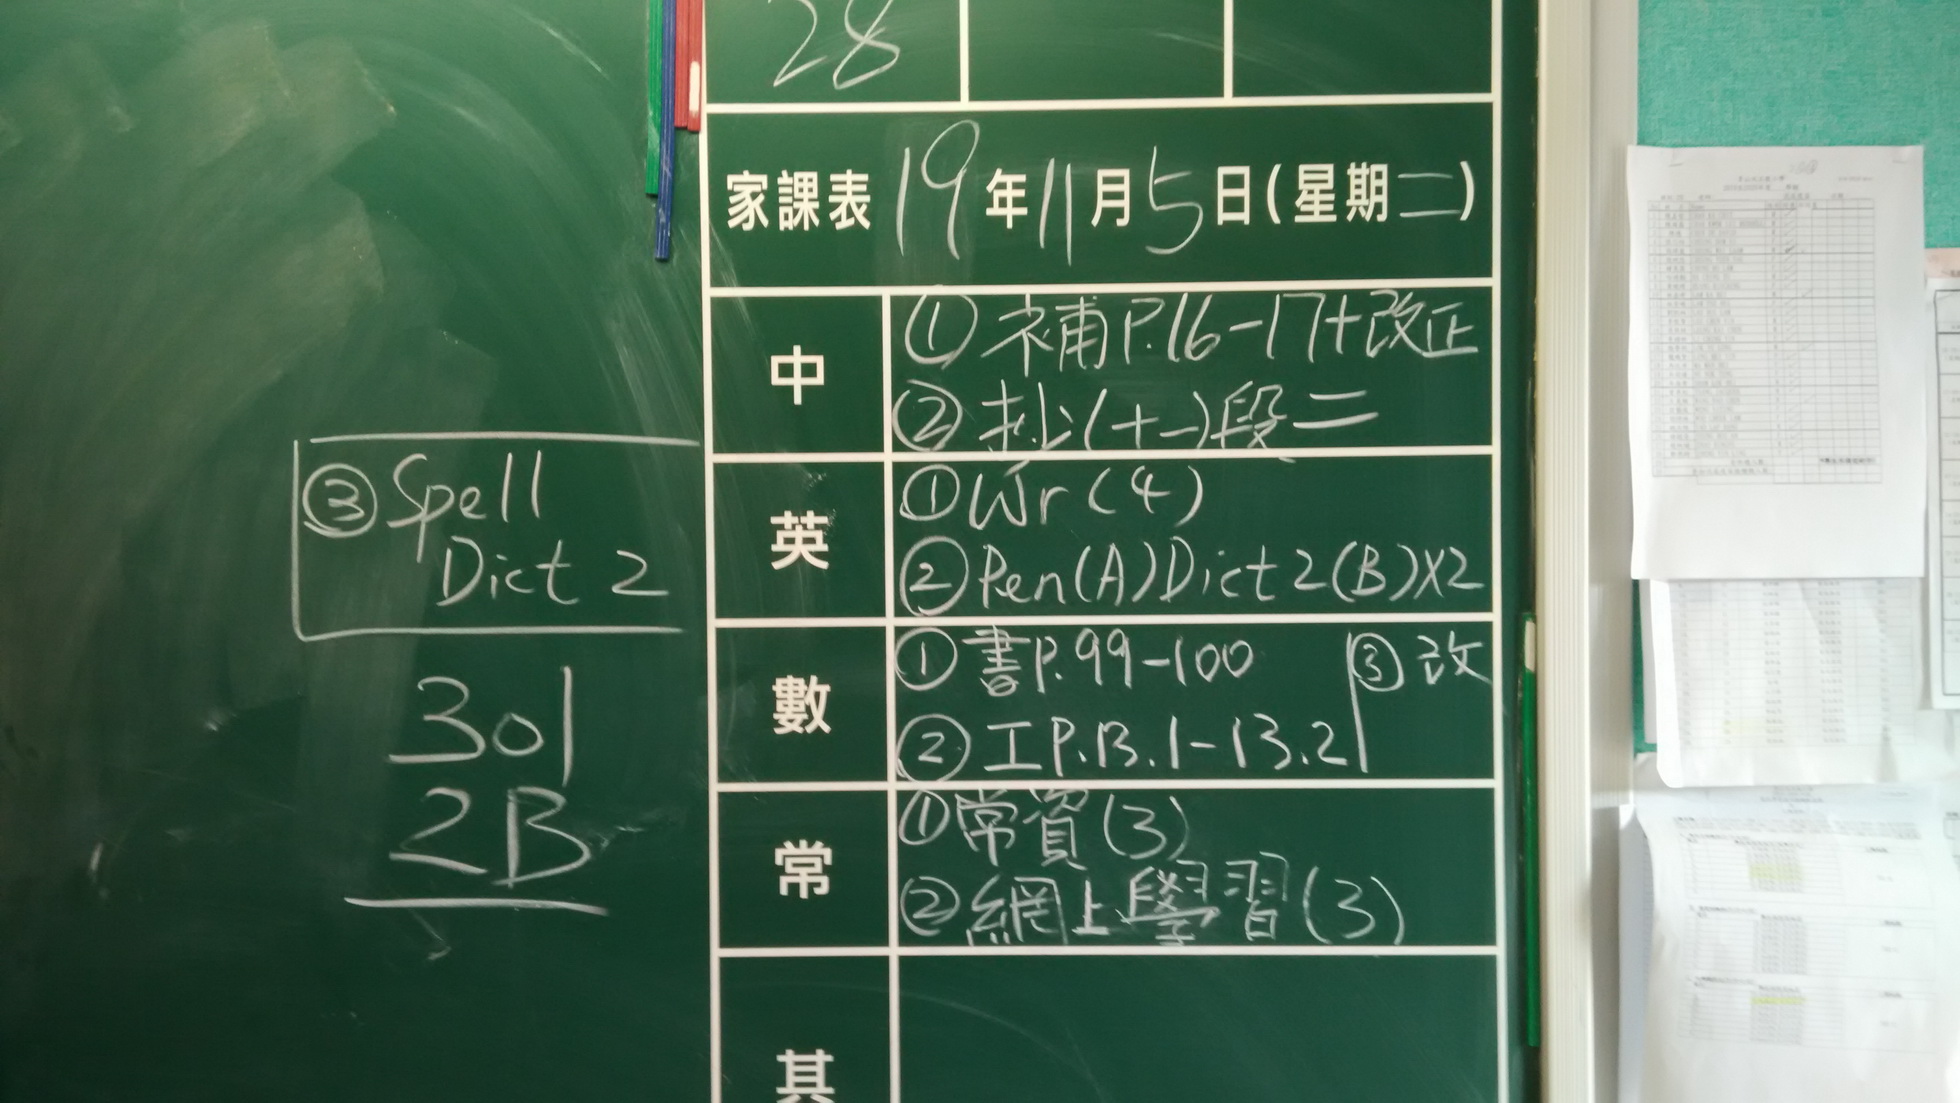 28
家課表 19年11月5日(星期二)
中
① 補P.16-17+改正
② 抄(十一)段二
英
①Wr(4)
②Pen(A)Dict2(B)X2
③Spell
Dict 2
數
① 書P.99-100
② 工P.13.1-13.2
③ 改
常
①常資(3)
②網上學習(3)
其
301
2B